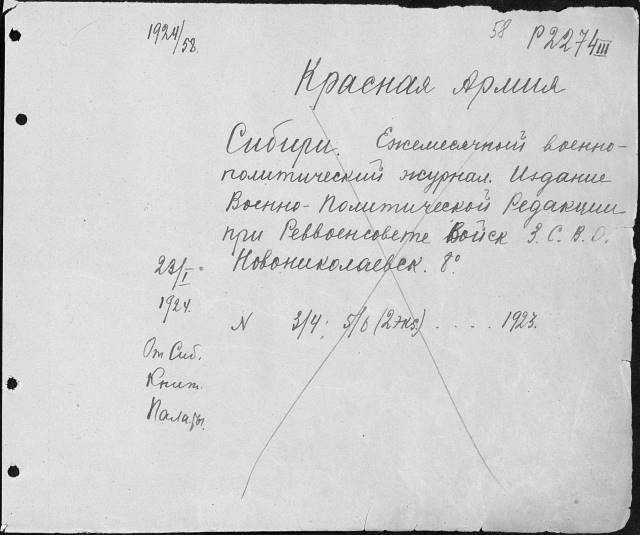 1924/58.
58 Р2274III
Красная Армия
Сибири. Ежемесячный военно-
политический журнал. Издание
Военно-Политической Редакции
при Реввоенсовете Войск З.С.В.О.
Новониколаевск. 8º.
23/I
1924.
N 3/4; 5/6 (2 экз.) . . . . 1923.
От Сиб.
Книж.
Палаты.